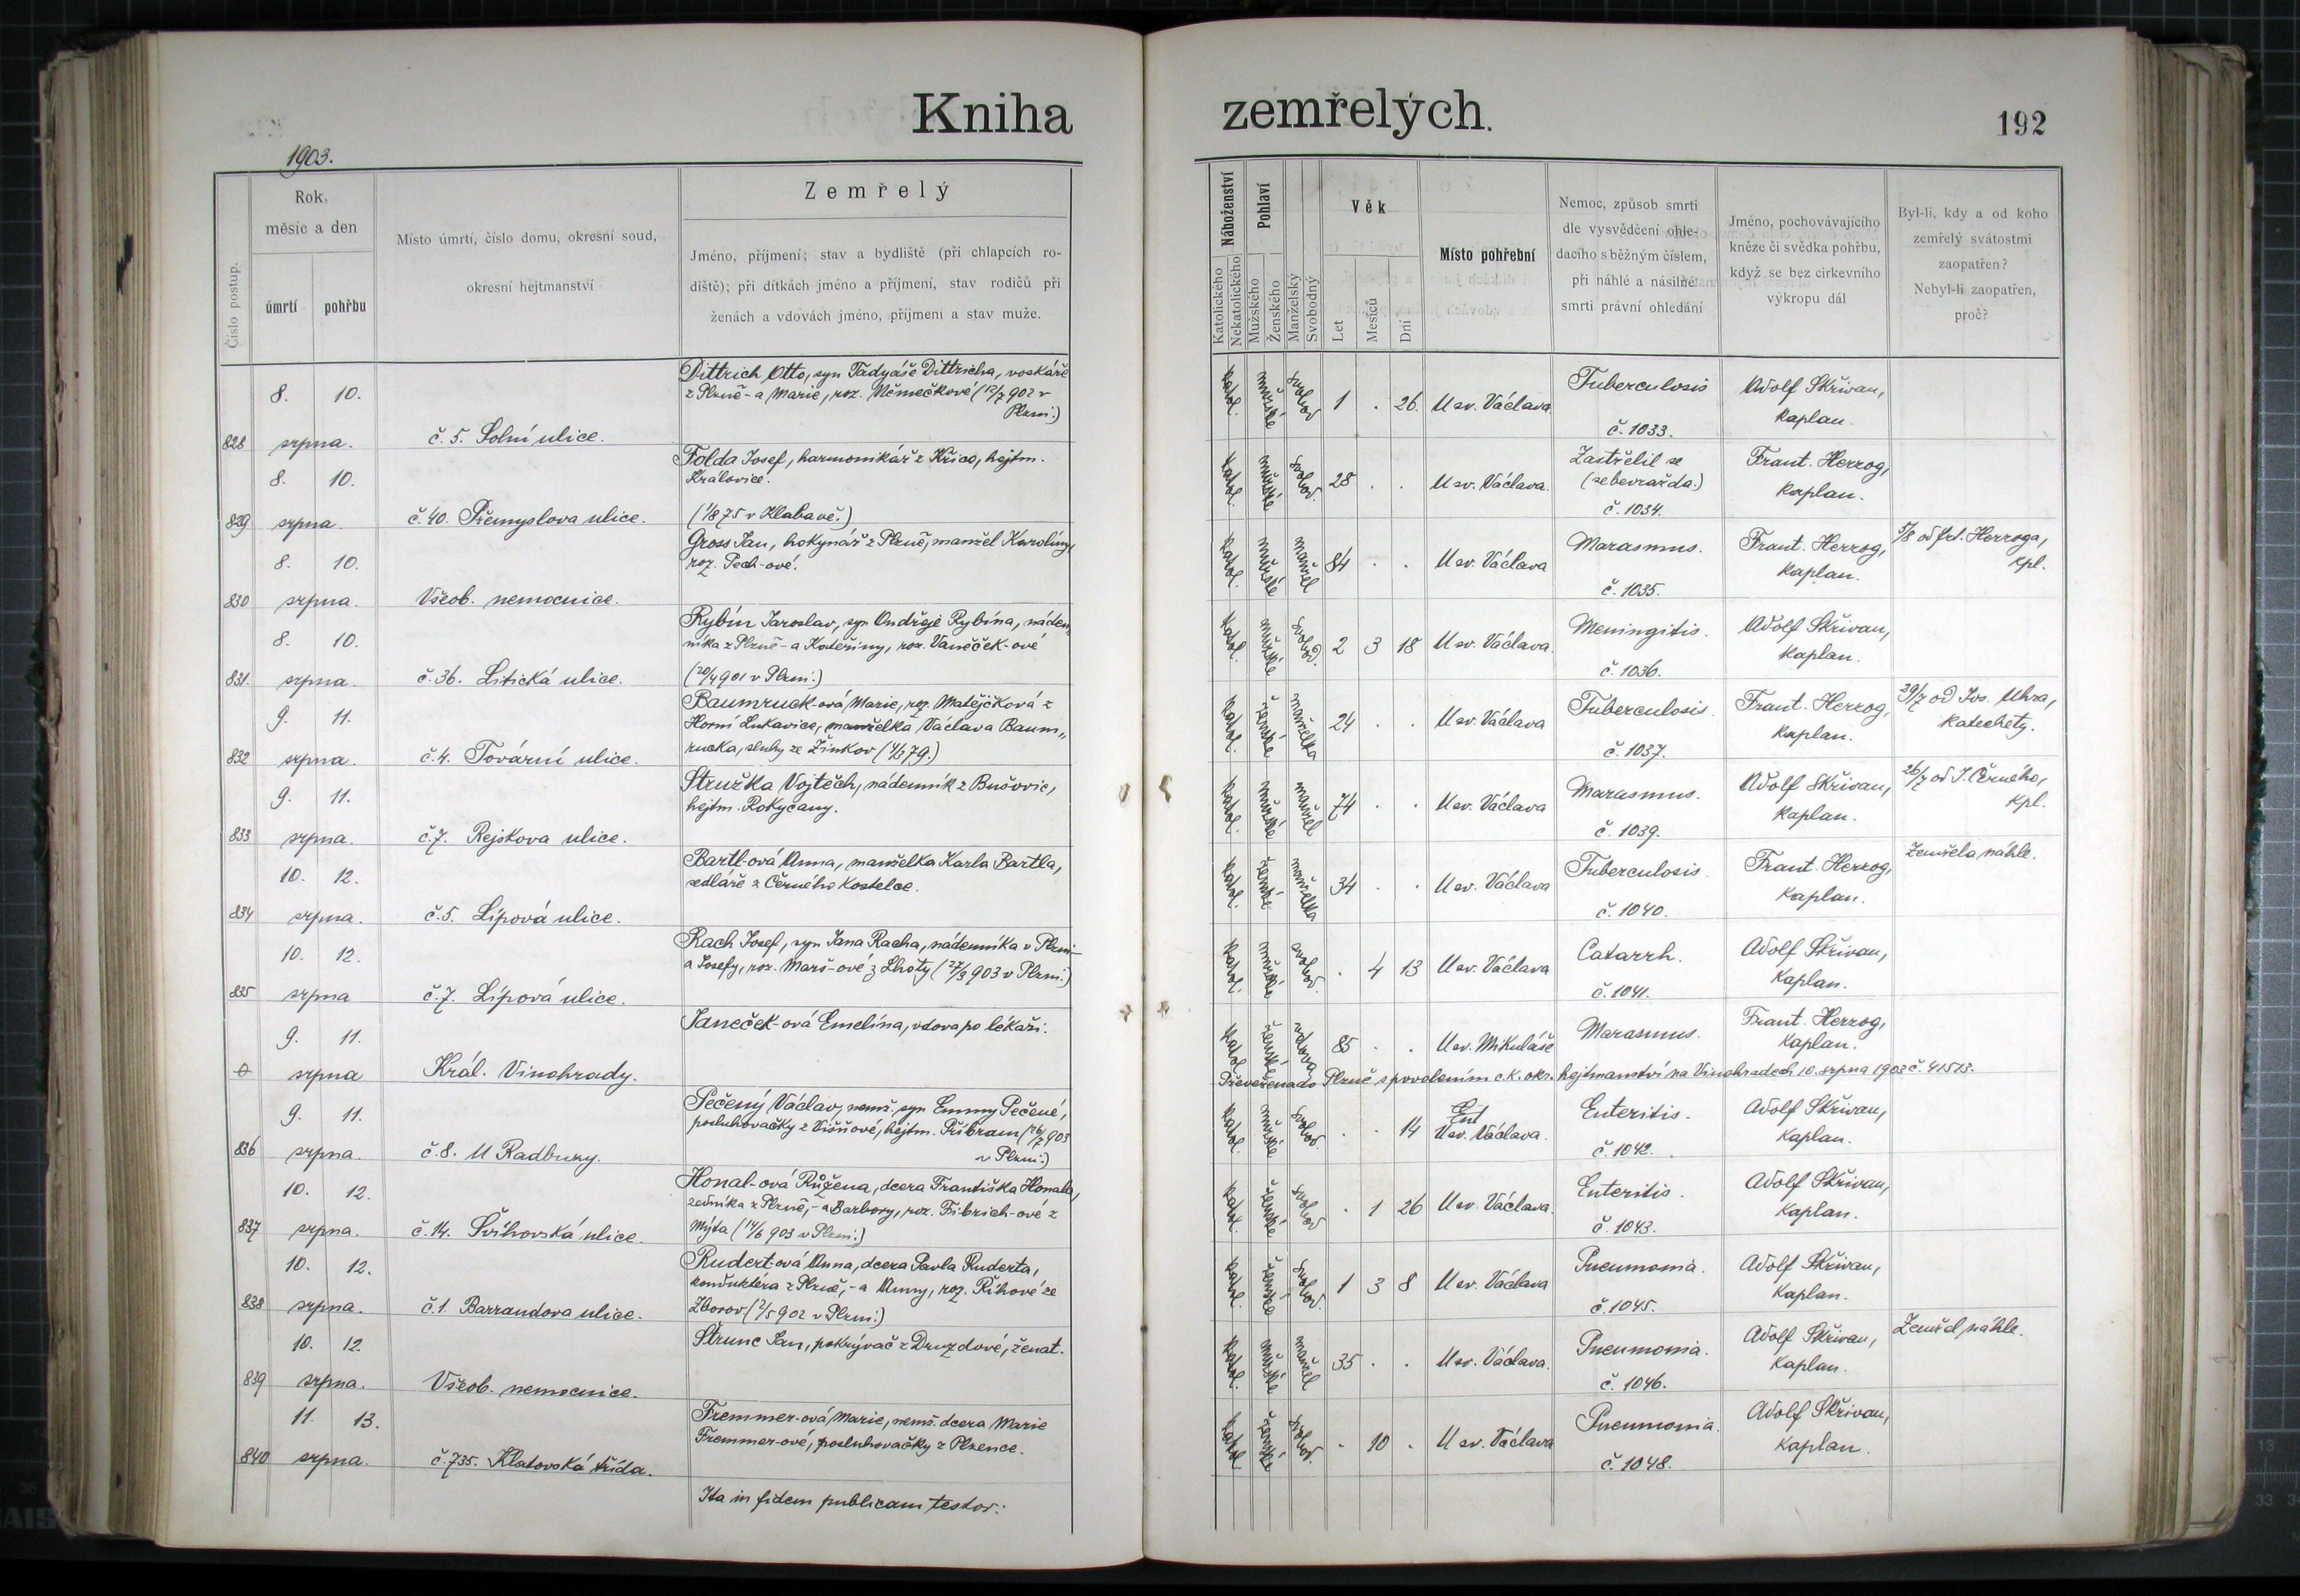 Kniha zemřelých.
192
1903.
Číslo postup.
Rok,
měsíc a den
úmrtí
pohřbu
Místo úmrtí, číslo domu, okresní soud,
okresní hejtmanství
Zemřelý
Jméno, příjmení; stav a bydliště (při chlapcích ro-
diště); při dítkách jméno a příjmení, stav rodičů při
ženách a vdovách jméno, příjmení a stav muže.
Náboženství
Katolického
Nekatolického
Pohlaví
Mužského
Ženského
Manželský
Svobodný
Věk
Let
Mesíců
Dní
Místo pohřební
Nemoc, způsob smrti
dle vysvědčení ohle-
dacího s běžným číslem,
při náhlé a násilné
smrti právní ohledání
Jméno, pochovávajícího
kněze či svědka pohřbu,
když se bez církevního
výkropu dál
Byl-li, kdy a od koho
zemřelý svátostmi
zaopatřen?
Nebyl-li zaopatřen,
proč?
828 8. 10. srpna. č. 5. Solní ulice.
Dittrich Otto, syn Tadyáše Dittricha, voskáře
z Plzně - a Marie, roz. Němečkové (12/7 902 v
Plzni.)
katol. mužské svobod 1 . 26. U sv. Václava
Tuberculosis
č. 1033.
Adolf Skřivan,
kaplan.
829 8. 10. srpna. č. 40. Přemyslova ulice.
Folda Josef, harmonikář z Křic, hejtm.
Kralovice.
(1875 v Klabavě.)
katol. mužské svobod. 28 . . U sv. Václava.
Zastřelil se
(sebevražda.)
č. 1034.
Frant. Herzog,
kaplan.
830 8. 10. srpna. Všeob. nemocnice.
Gross Jan, hokynář z Plzně, manžel Karolíny,
roz. Pech-ové.
katol. mužské manžel 84 . . U sv. Václava
Marasmus.
č. 1035.
Frant. Herzog,
kaplan.
5/8 od frt. Herzoga,
kpl.
831. 8. 10. srpna. č. 36. Litická ulice.
Rybín Jaroslav, syn Ondřeje Rybína, náden„
níka z Plzně - a Kateřiny, roz. Vaněček-ové
(20/4 901 v Plzni.)
katol. mužské svobod. 2 3 18 U sv. Václava.
Meningitis.
č. 1036.
Adolf Skřivan,
kaplan.
832 9. 11. srpna. č. 4. Tovární ulice.
Baumruck-ová Marie, roz. Matějčková z
Horní Lukavice, manželka Václava Baum„
rucka, sluhy ze Žinkov
katol. ženské manželka 24 . . U sv. Václava
Tuberculosis.
č. 1037.
Frant. Herzog,
kaplan.
29/7 od Jos. Uhra,
katechety.
833 9. 11. srpna. č. 7. Rejskova ulice.
Stružka Vojtěch, nádenník z Bušovic,
hejtm. Rokycany.
katol. mužské manžel 74 . . U sv. Václava
Marasmus.
č. 1039.
Adolf Skřivan,
kaplan.
26/7 od J. Černého,
kpl.
834 10. 12. srpna. č. 5. Lípová ulice.
Bartl-ová Anna, manželka Karla Bartla,
sedláře z Černého Kostelce.
katol. ženské manželka 34 . . U sv. Václava
Tuberculosis.
č. 1040.
Frant. Herzog,
kaplan.
Zemřela náhle.
835 10. 12. srpna č. 7. Lípová ulice.
Rach Josef, syn Jana Racha, nádenníka v Plzni -
a Josefy, roz. Marš-ové z Lhoty (27/3 903 v Plzni.)
katol. mužské svobod. . 4 13 U sv. Václava
Catarrh.
č. 1041.
Adolf Skřivan,
kaplan.
0 9. 11. srpna Král. Vinohrady.
Janeček-ová Emelína, vdova po lékaři.
katol. ženské vdova 85 . . U sv. Mikuláše
Marasmus.
Frant. Herzog,
kaplan.
Převežena do Plzně s povolením c.k. okr. hejtmanství na Vinohradech 10. srpna 1903 č. 41513.
836 9. 11. srpna. č. 8. U Radbuzy.
Pečený Václav, nemž. syn Emmy Pečené,
posluhovačky z Višňové, hejtm. Příbram (26/7 903
v Plzni.)
katol. mužské svobod. . . 14 U sv. Václava.
Enteritis.
č. 1042.
Adolf Skřivan,
kaplan.
837 10. 12. srpna. č. 14. Švihovská ulice.
Honal-ová Růžena, dcera Františka Honala,
zedníka z Plzně, - a Barbory, roz. Fibrich-ové z
Mýta (14/6 903 v Plzni.)
katol. ženské svobod . 1 26 U sv. Václava.
Enteritis.
č. 1043.
Adolf Skřivan,
kaplan.
838 10. 12. srpna. č. 1. Barrandova ulice.
Rudert-ová Anna, dcera Pavla Ruderta,
konduktéra z Plzně, - a Anny, roz. Říhové ze
Zborov (2/5 902 v Plzni.)
katol. ženské svobod. 1 3 8 U sv. Václava
Pneumonia.
č. 1045.
Adolf Skřivan,
kaplan.
839 10. 12. srpna. Všeob. nemocnice.
Štrunc Jan, pokrývač z Druzdové, ženat.
katol. mužské manžel 35 . . U sv. Václava.
Pneumonia.
č. 1046.
Adolf Skřivan,
kaplan.
Zemřel náhle.
840 11. 13. srpna. č. 735. Klatovská třída.
Fremmer-ová Marie, nemž. dcera Marie
Fremmer-ové, posluhovačky z Plzence.
katol. ženské svobod. . 10 . U sv. Václava
Pneumonia.
č. 1048.
Adolf Skřivan,
kaplan.
Ita in fidem publicam testor: